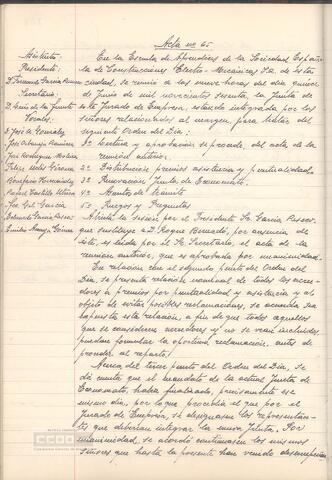 Acta nº 65
Asistentes
Presidente:
Secretario:
Vocales:
D. José A. Gonzalez
José Rodriguez Molina
Felipe
Bonifacio Fernández
Rafael Castillo
José Gil García
Eduardo García
Emilio Muñoz
En la Escuela de Aprendices de la Sociedad Españo-
la de Construcciones Electro-Mecánicas S.A. de esta
ciudad, se reunió a las nueve horas del día quince
de Junio de mil novecientos sesenta, la Junta de
este Jurado de Empresa, estando integrada por los
señores relacionados al margen, para tratar del
siguiente Orden del Dia:
1º Lectura y aprobación si procede, del acta de la
reunión anterior.
2º Distribución premios asistencia y puntualidad
3º Renovación Junta de Economato.
4º Asuntos de trámite
5º Ruegos y Preguntas
Abierta la sesión por el Presidente Sr. García
que sustituye a D. Roque, por ausencia de
éste, es leida por el Sr. Secretario, el acta de la
reunión anterior, que es aprobada por unanimidad.
En relación con el segundo punto del Orden del
Dia, se presenta relación nominal de todos los acree-
dores a premios por puntualidad y asistencia y al
objeto de evitar posibles reclamaciones, se acuerda sea
expuesta esta relación, a fin de que todos aquellos
que se consideren acreedores y no se vean incluidos
puedan formular la oportuna reclamación, antes de
proceder al reparto.
Acerca del tercer punto del Orden del Dia, se
dá cuenta que el mandato de la actual Junta de
Economato, habia finalizado, precisamente ese
mismo dia, por lo que procedía el que por el
Jurado de Empresa, se designasen los representan-
tes que deberian integrar la nueva Junta. Por
unanimidad, se acordó continuasen los mismos
señores que hasta la presente han venido desempeñan
ccoo